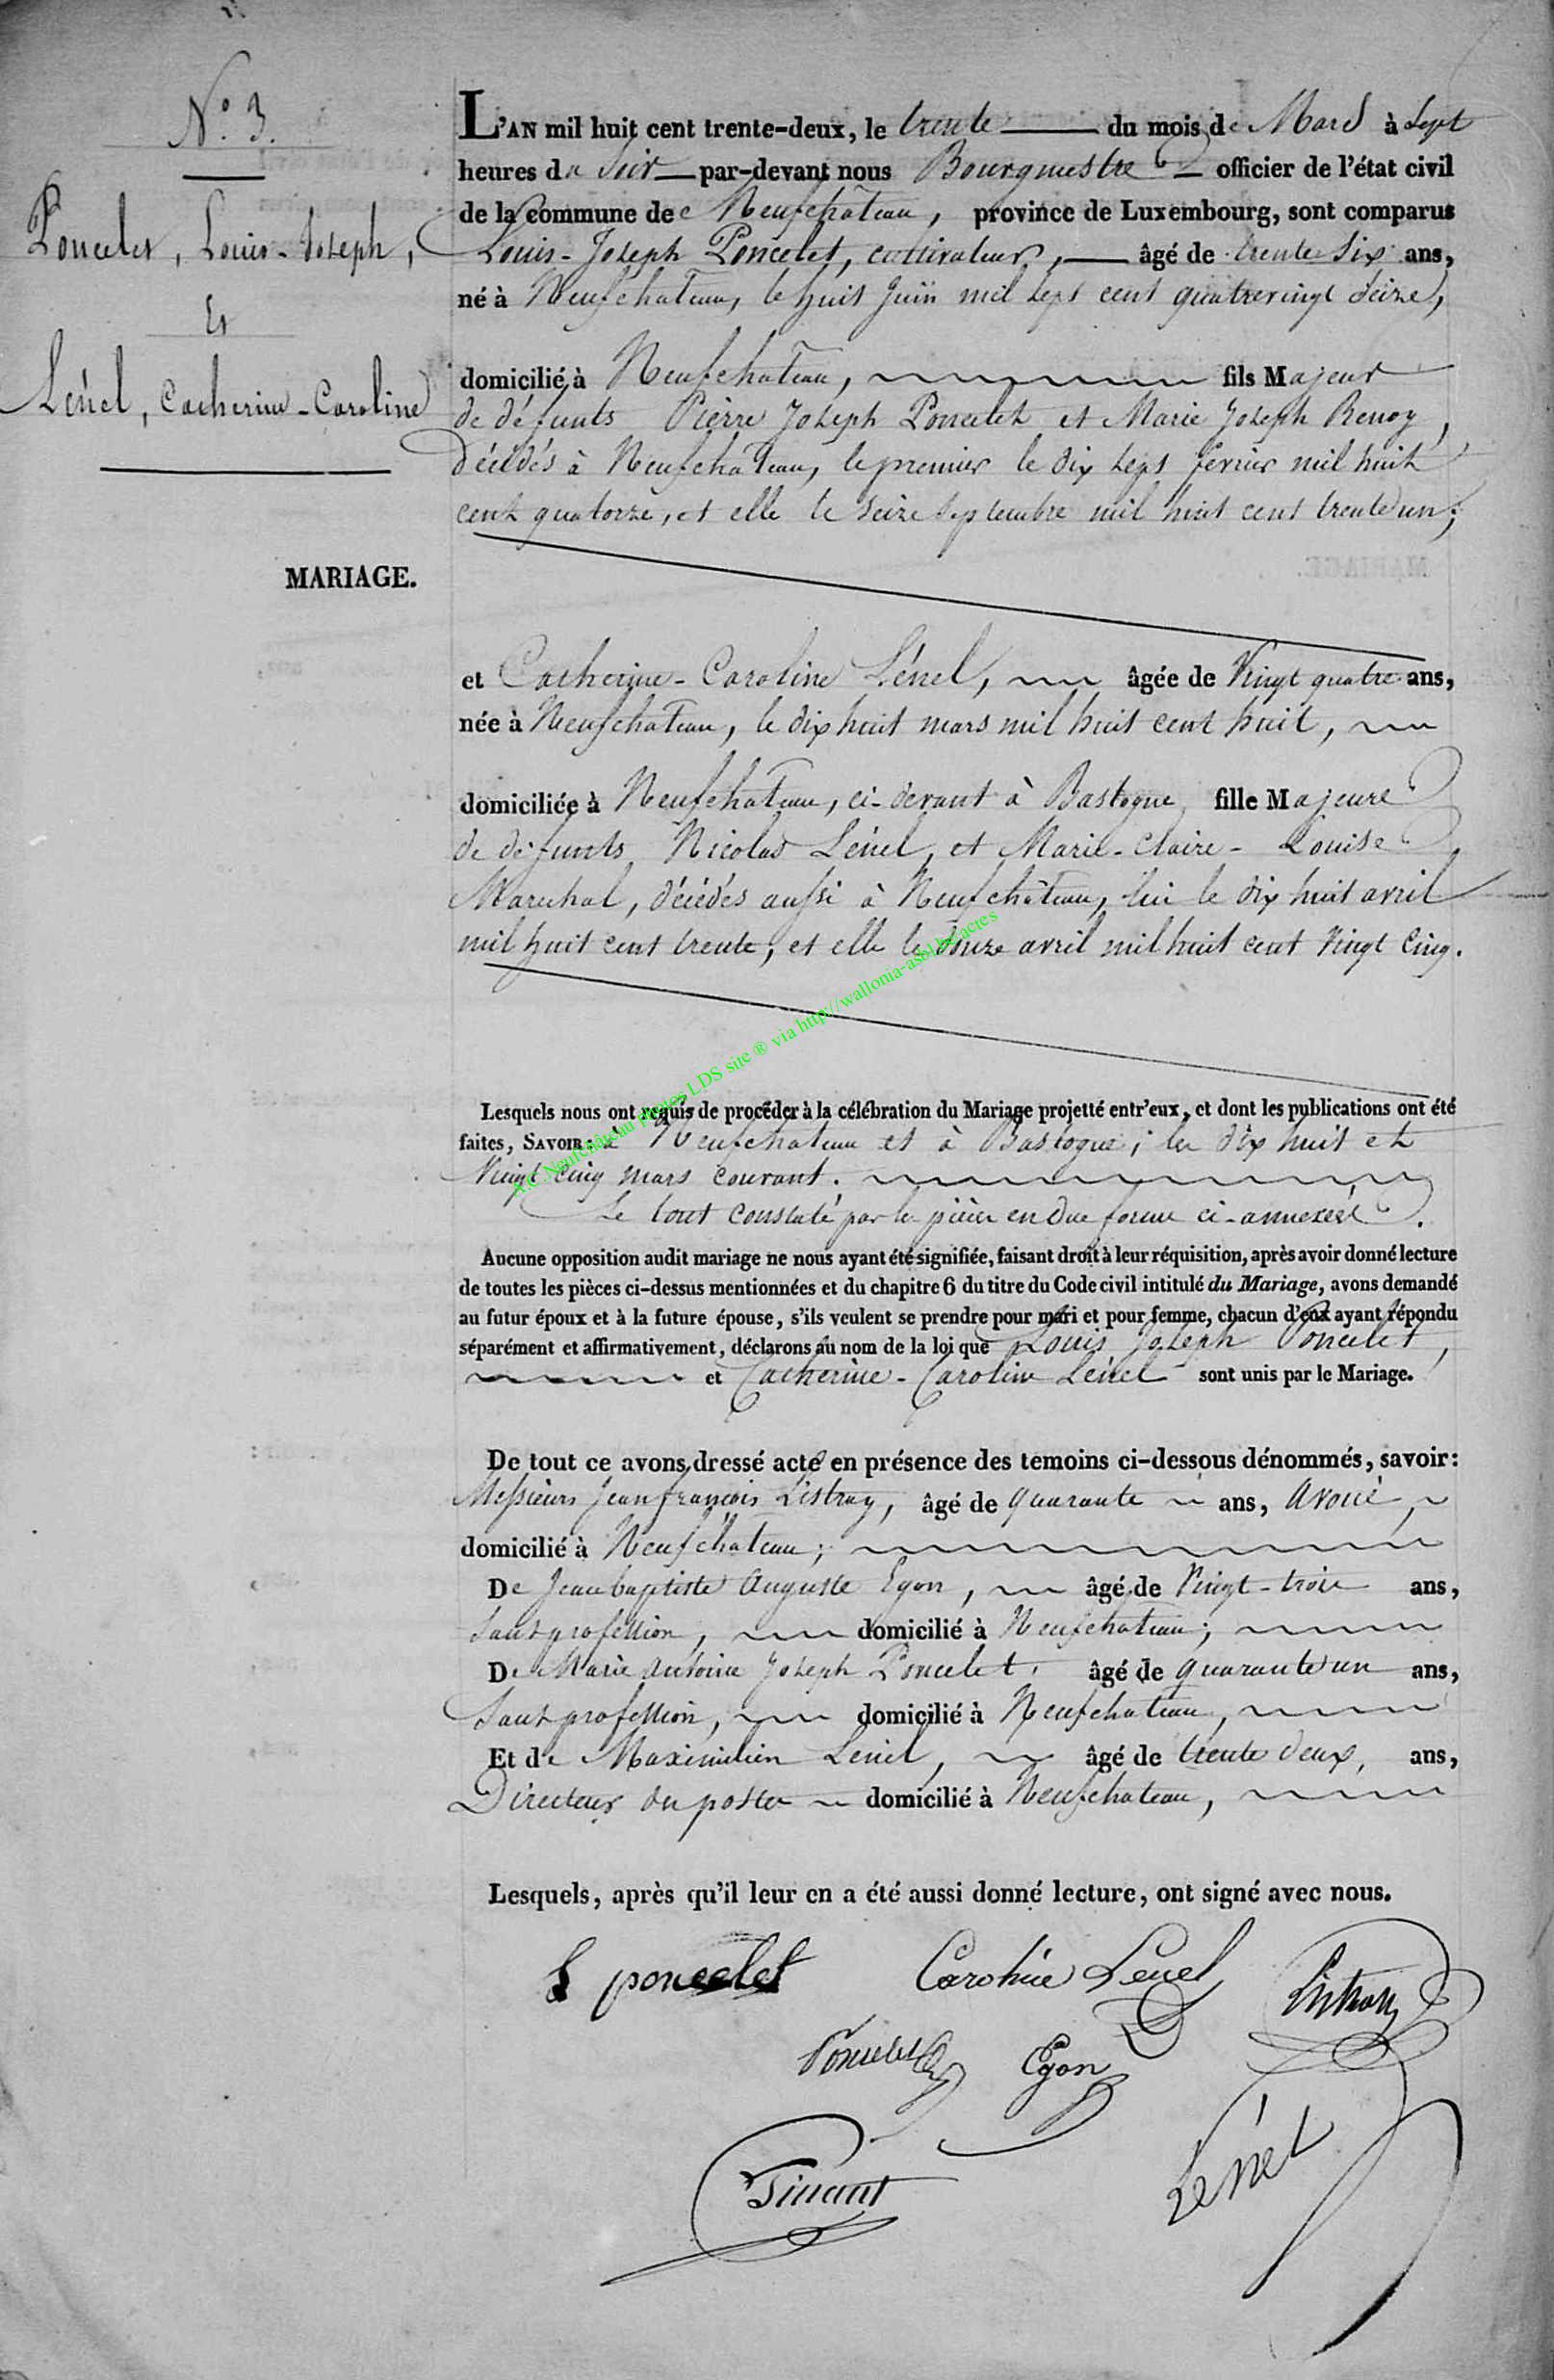 N.° 3.
Poncelet, Louis-Joseph,
Et
Lénel, Catherine-Caroline
MARIAGE.
L'AN mil huit cent trente-deux, le trente du mois de Mars à Sept
heures du Soir par-devant nous Bourgmestre officier de l'état civil
de la commune de Neufchâteau, province de Luxembourg, sont comparus
Louis-Joseph Poncelet, cultivateur, âgé de trente Six ans,
né à Neufchateau, le huit Juin mil Sept cent quatrevingt Seize,
domicilié à Neufchateau, fils Majeur
de défunts Pierre Joseph Poncelet et Marie Joseph Renoy,
Décédés à Neufchateau, le premier le dix Sept fevrier mil huit
cent quatorze, et elle le Seize Septembre mil huit cent trente un;
et Catherine-Caroline Lénel, âgée de Vingt quatre ans,
née à Neufchateau, le dix huit mars mil huit cent huit,
domiciliée à Neufchateau, ci-devant à Bastogne fille Majeure
de défunts Nicolas Lénel, et Marie-Claire-Louise
Marechal, décédés aussi à Neufchâteau, lui le dix huit avril
mil huit cent trente, et elle le Douze avril mil huit cent Vingt Cinq.
Lesquels nous ont requis de procéder à la célébration du Mariage projetté entr'eux, et dont les publications ont été
faites, SAVOIR: à Neufchateau et à Bastogne; les dix huit et
Vingt cinq mars courant.
Le tout constaté par les pièces en due forme ci-annexées.
Aucune opposition audit mariage ne nous ayant été signifiée, faisant droit à leur réquisition, après avoir donné lecture
de toutes les pièces ci-dessus mentionnées et du chapitre 6 du titre du Code civil intitulé du Mariage, avons demandé
au futur époux et à la future épouse, s'ils veulent se prendre pour mari et pour femme, chacun d'eux ayant répondu
séparément et affirmativement, déclarons au nom de la loi que Louis Joseph Poncelet,
et Catherine-Caroline Lénel sont unis par le Mariage.
De tout ce avons dressé acte en présence des temoins ci-dessous dénommés, savoir:
Messieurs Jean françois Listray, âgé de quarante ans, avoué,
domicilié à Neufchateau;
De Jean baptiste Auguste Egon, âgé de Vingt-trois ans,
Sans profession, domicilié à Neufchateau;
De Marie Antoine Joseph Poncelet, âgé de quarante un ans,
Sans profession, domicilié à Neufchateau,
Et de Maximilien Lénel, âgé de trente deux, ans,
Directeur des postes domicilié à Neufchateau,
Lesquels, après qu'il leur en a été aussi donné lecture, ont signé avec nous.
L poncelet Caroline Lenel
Poncelet Egon
Tinant Lénel
A.C Neufchâteau photos LDS site ® via http://wallonia-asbl.be/actes